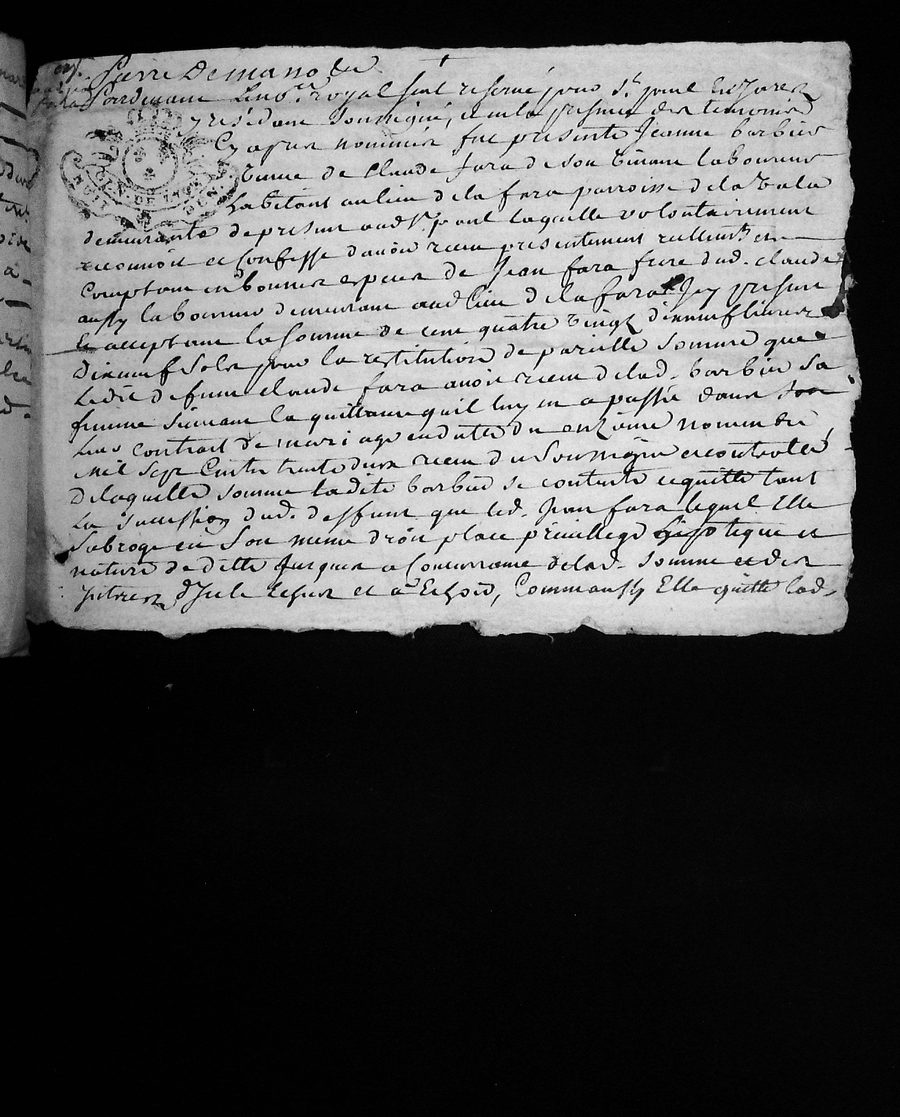 Pierre Demano
Pardevant le no.re royal reservé pour S.t paul en Jarez
y residant soussigné, et en la presence des temoins
Cy apres nommés fut presente Jeanne barbier
Veuve de Claude fara de son vivant laboureur
habitant au lieu de la fara parroisse de la Vala
demeurante de present aud S.t paul laquelle volontairement
reconnoit et confesse d'avoir receu presentement reellem.t et
Comptant en bonnes especes de Jean fara frere dud. claude
aussy laboureur demeurant aud lieu de la fara Icy present
et acceptant la somme de cent quatre vingt dixneuf livres
Dixneuf Sols pour la restitution de pareille somme que
Ledit defunt claude fara avoit receu de lad. barbier sa
femme suivant la quittance qu'il luy en a passée dans
Leur contrat de mariage en datte du onzieme novembre
Mil Sept Cents trente deux receu du Soussigné et controllé
De laquelle somme ladite barbier se contente et quitte tant
La succession dud. deffunt que led. Jean fara lequel Elle
subroge en son meme droit place privillege hipoteque et
nature de dette Jusques a Concurrance de lad. somme et des
Interest d'Icelle Echeus et a Echoir, Comm'aussy Elle quitte lad.